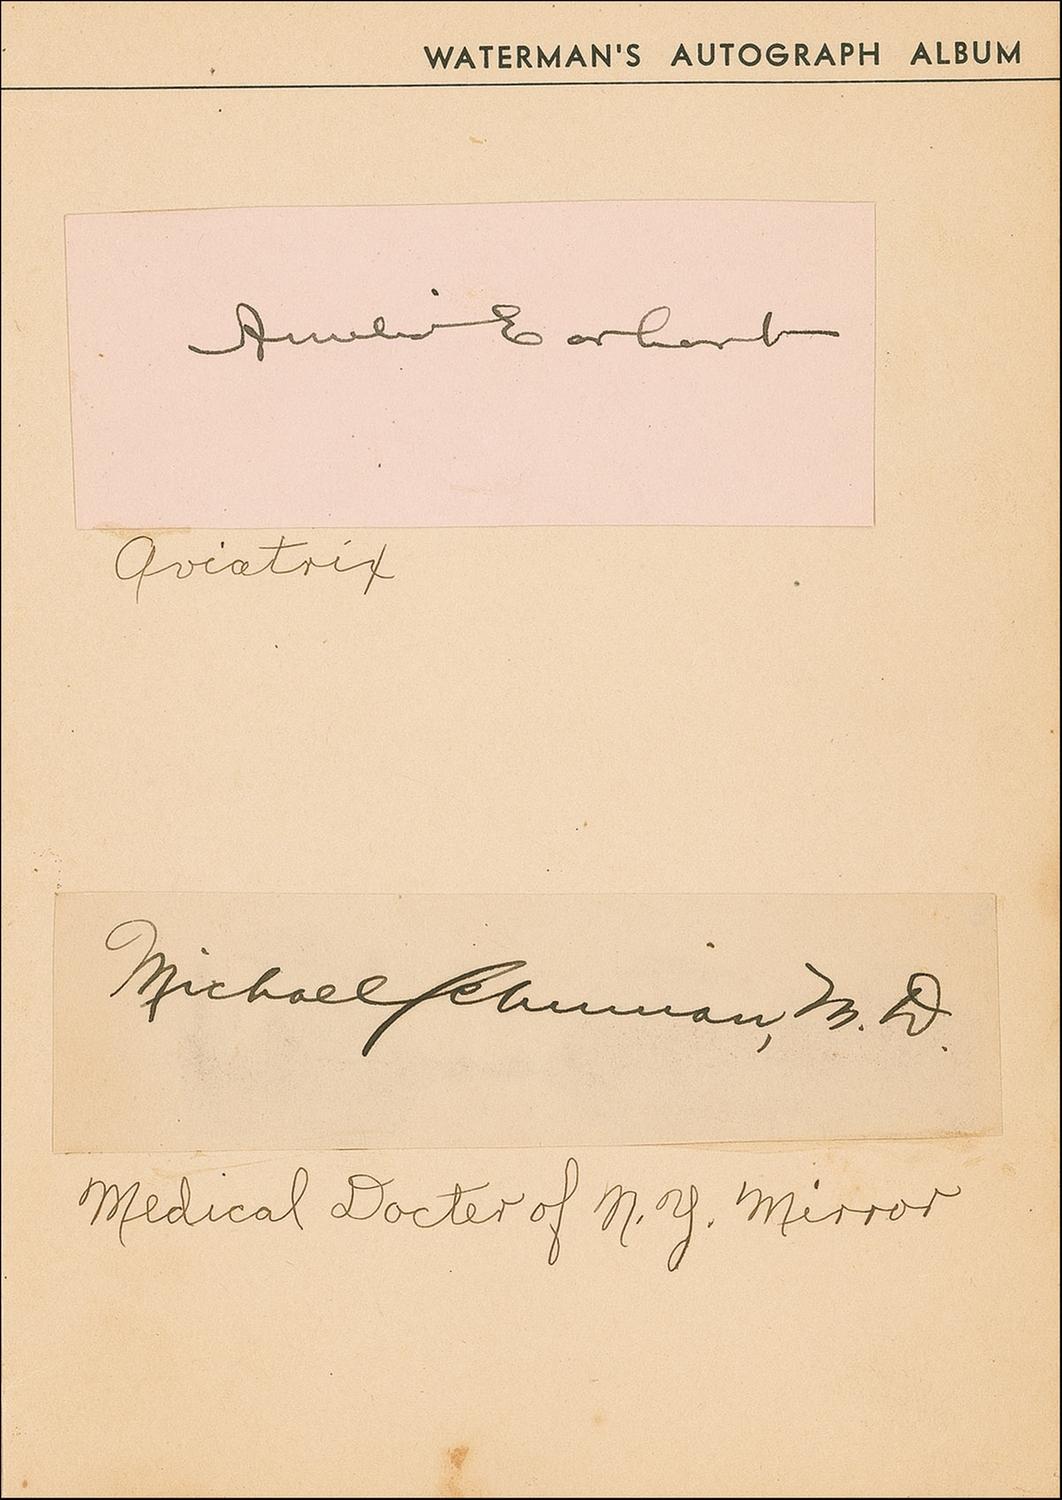 WATERMAN'S AUTOGRAPH ALBUM
Amelia Earhart
Aviatrix
Michael Schuman, M.D.
Medical Docter of N.Y. Mirror